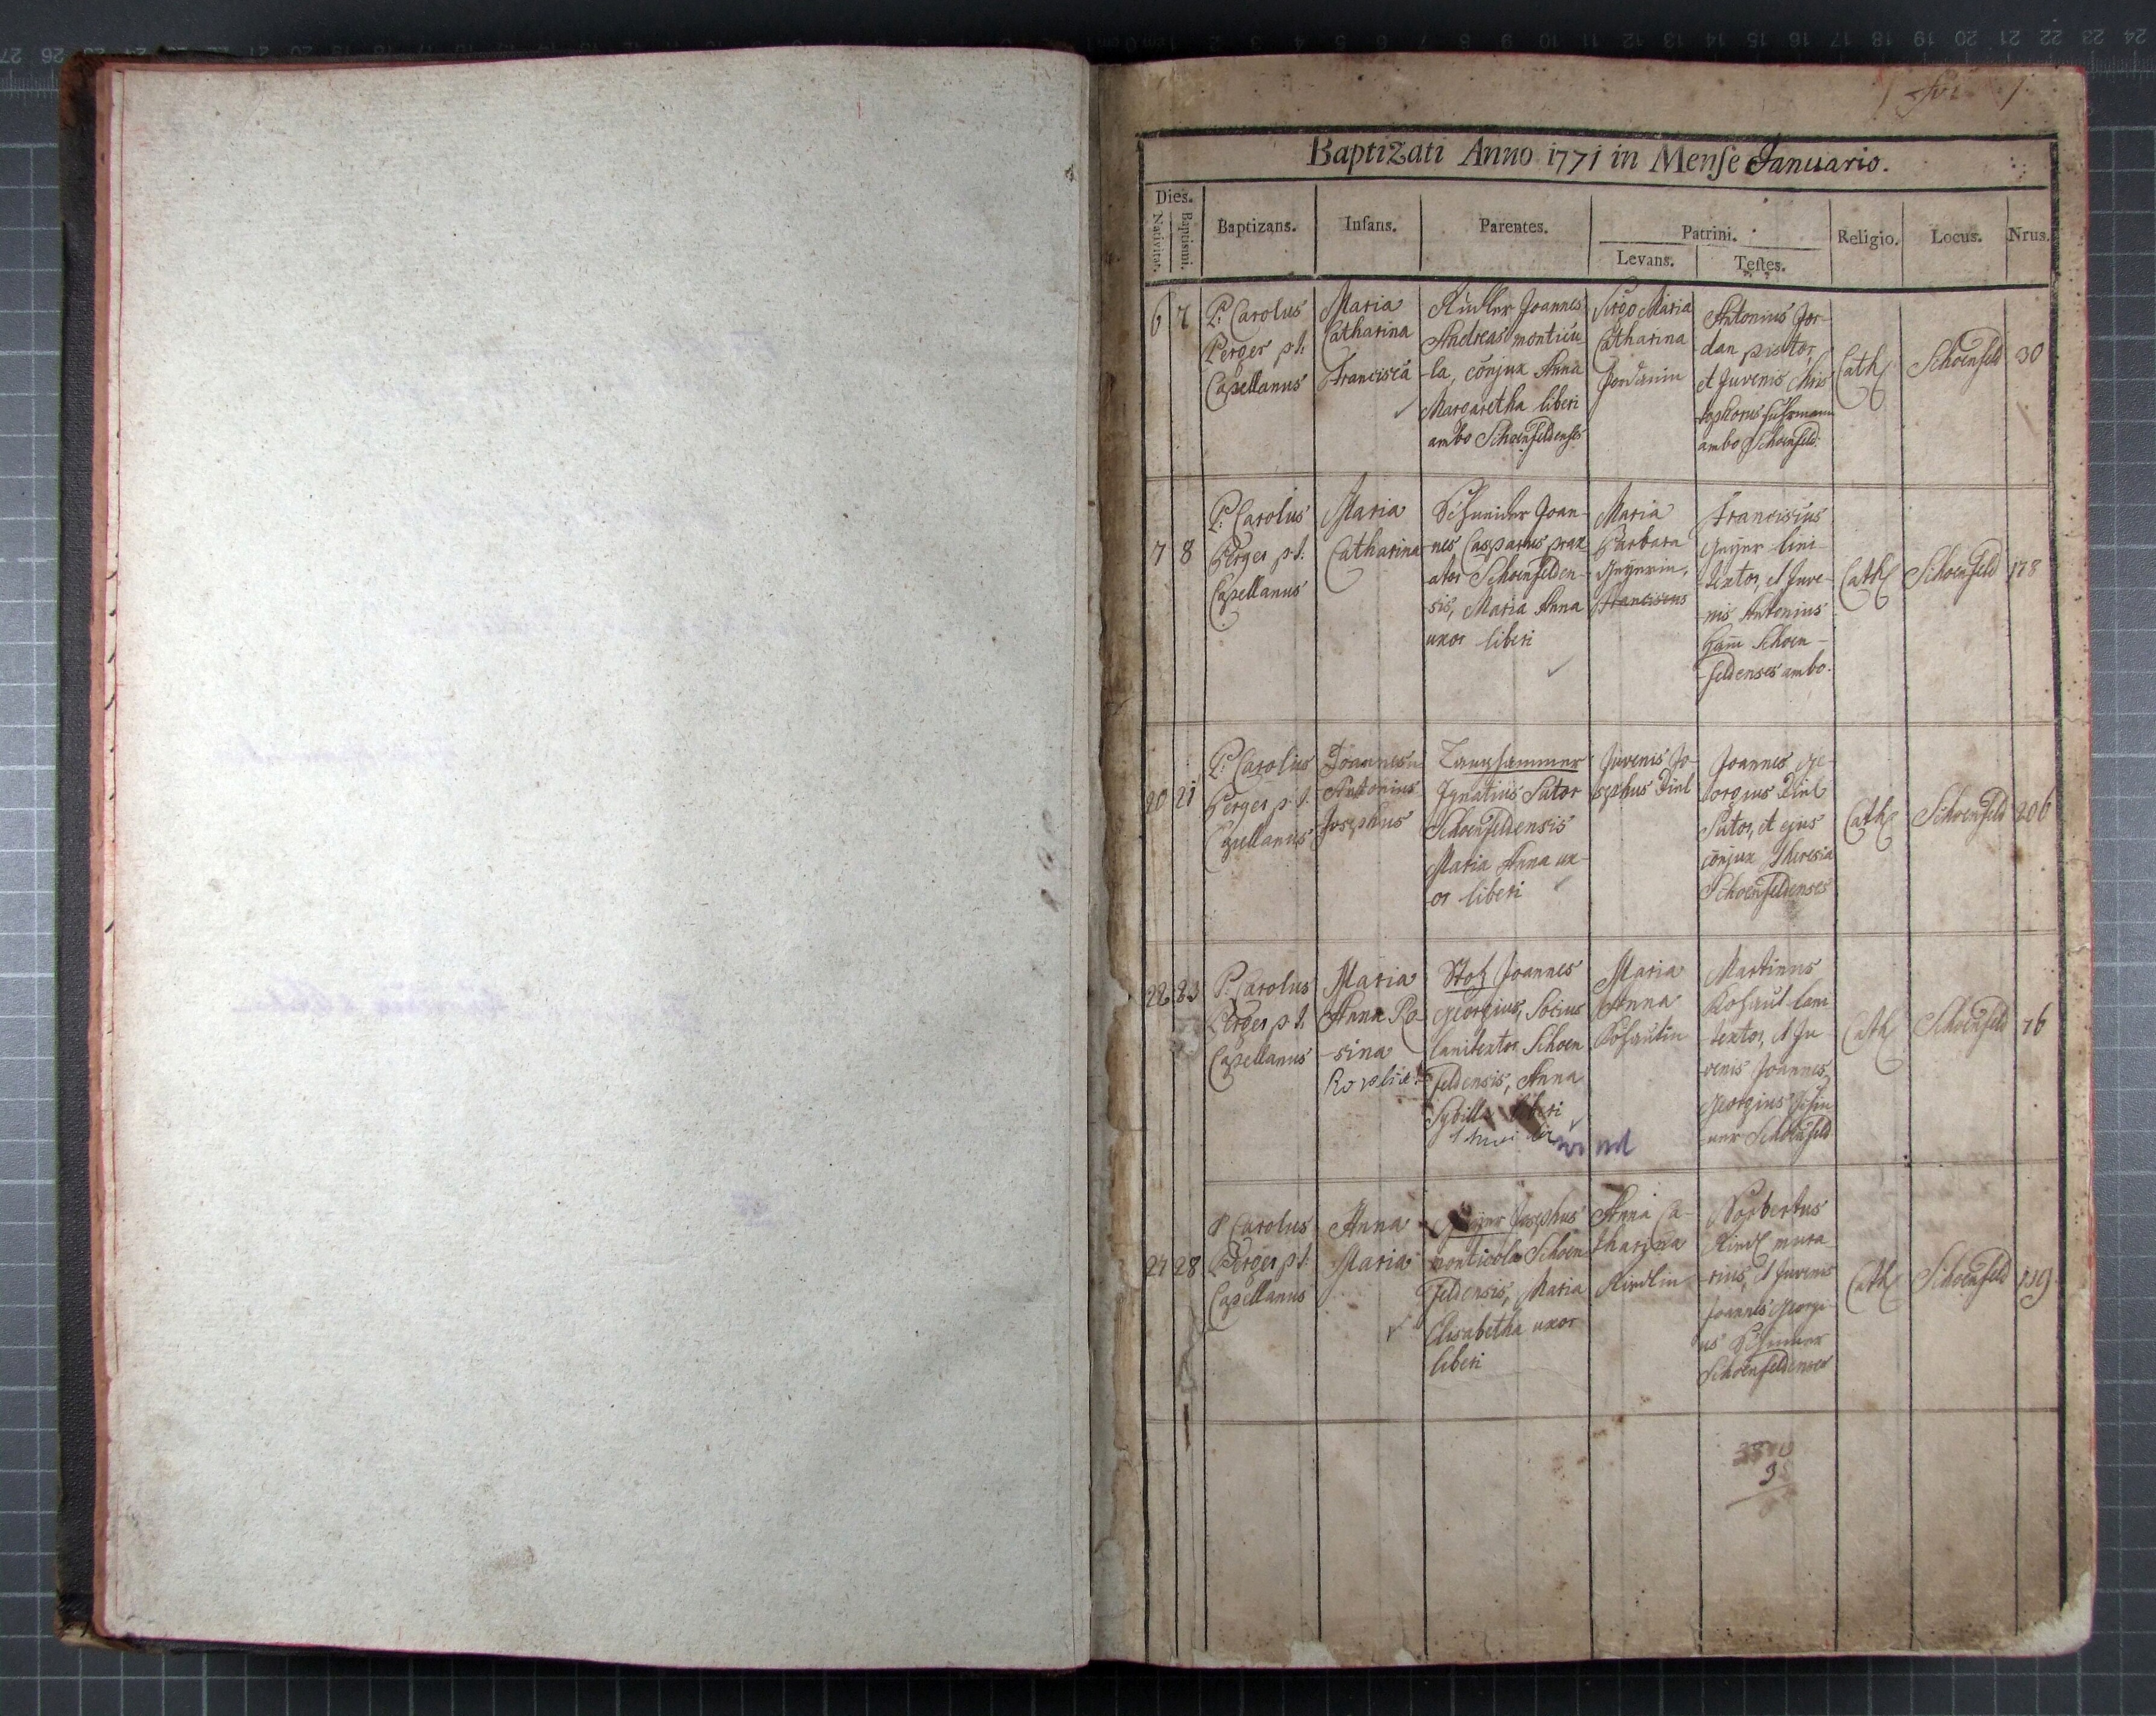 Baptizati Anno 1771 in Mense Januario.
Dies.
Nativitat.
Baptismi.
Baptizans.
Infans.
Parentes.
Patrini.
Levans.
Testes.
Religio.
Locus.
Nrus.
6
7
P: Carolus
Perger p.t.
Capellanus
Maria
Catharina
Francisca
Joannes
Andreas monticu
-la, conjux Anna
Margaretha liberi
ambo Schoenfeldenses
Maria
Catharina
Jordanin
Antonius Jor-
dan pistor,
et Juvenis Chris
tophorus Fuhrmann
ambo Schoenfeld:
Cath
Schoenfeld
30
7
8
P: Carolus
Perger p.t.
Capellanus
Maria
Catharina
Schneider Joan-
nes Casparus
Schoenfelden-
sis, Maria Anna
uxor liberi
Maria
Barbara
Geyerin,
Franciscus
Franciscus
Geyer lini-
textor, et Juve-
nis Antonius
Schoen-
feldenses ambo.
Cath
Schoenfeld
178
20
21
P: Carolus
Perger p.t.
Capellanus
Joannes
Antonius
Josephus
Ignatius Sutor
Schoenfeldensis
Maria Anna ux-
or liberi
Juvenis Jo-
sephus Diel
Joannes Ge-
orgius Diel
Sutor, et ejus
conjux Theresia
Schoenfeldenses
Cath
Schoenfeld
206
22
23
P: Carolus
Perger p.t.
Capellanus
Maria
Anna Ro-
sina
Stoh Joannes
Georgius, Socius
lanitextor Schoen
feldensis, Anna
Sybilla liberi
Maria
Anna
Kohautin
Martinus
Kohaut lani
textor, et Ju
venis Joannes
Georgius
Schoenfeld
Cath
Schoenfeld
76
27
28
P Carolus
Perger p.t.
Capellanus
Anna
Maria
Josephus
monticola Schoen
feldensis, Maria
Elisabetha uxor
liberi
Anna Ca-
tharina
Riedlin
Norbertus
Riedl mura
rius, et Juvenis
Joannes Georgi-
us
Schoenfeldenses
Cath
Schoenfeld
119